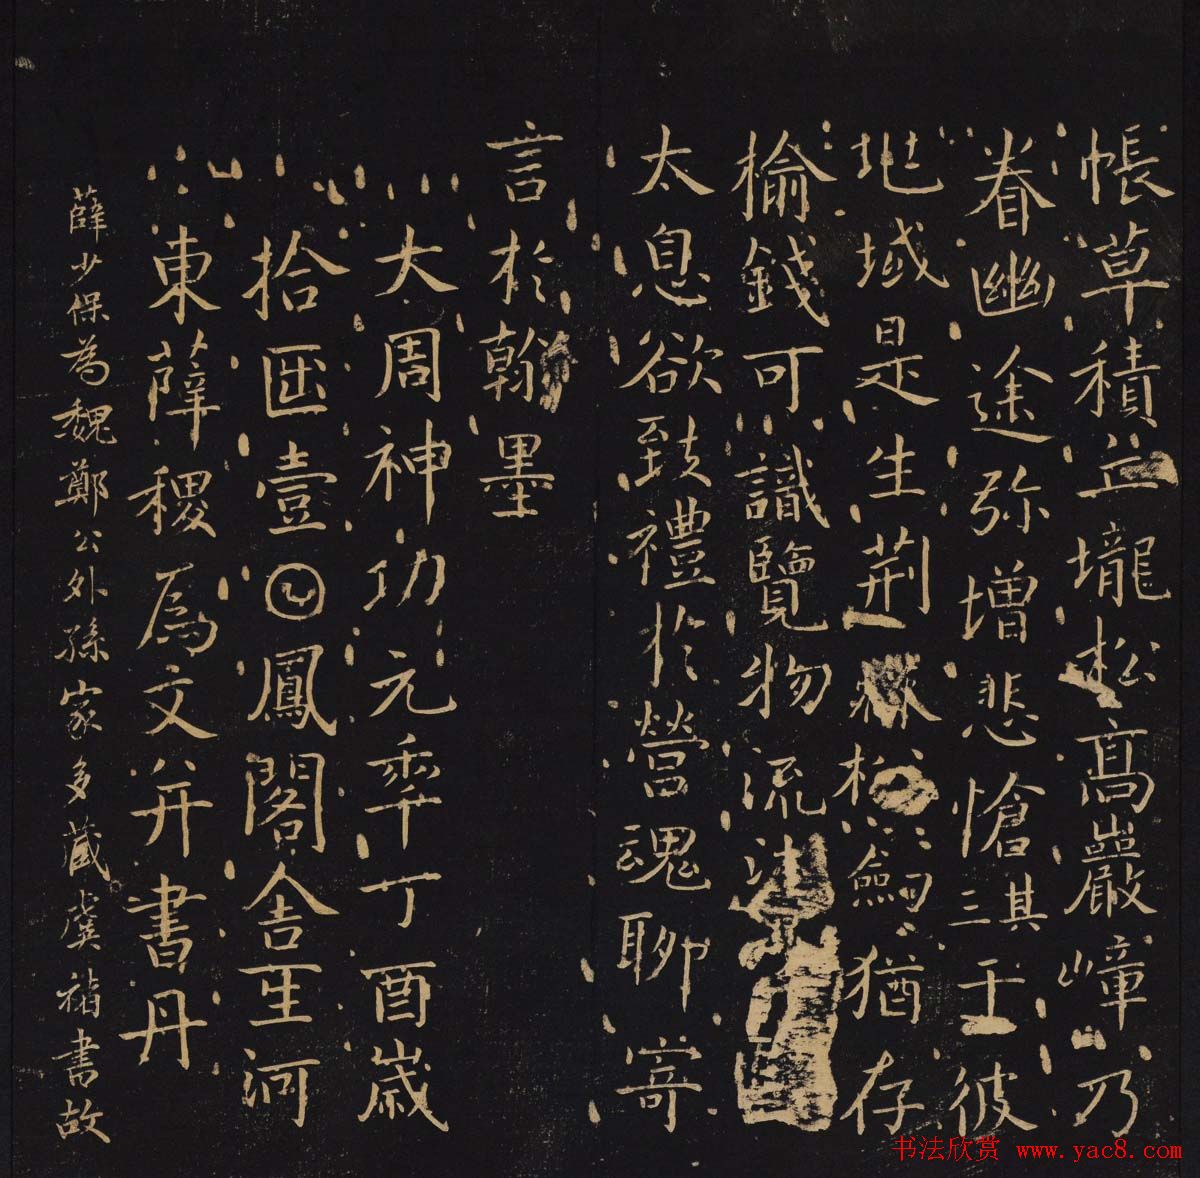 帳草積丘壠松高巖嶂乃
眷幽途弥增悲愴其三彼
地域是生荆棘松劔猶存
榆錢可識覽物流
太息欲致禮於營魂聊寄
言於翰墨
大周神功元𠡦丁酉歲
拾𠥱壹𡆠鳳閣舍𤯔河
東薛稷爲文并書丹
薛少保為魏鄭公外孫家多藏虞褚書故
书法欣赏 www.yac8.com